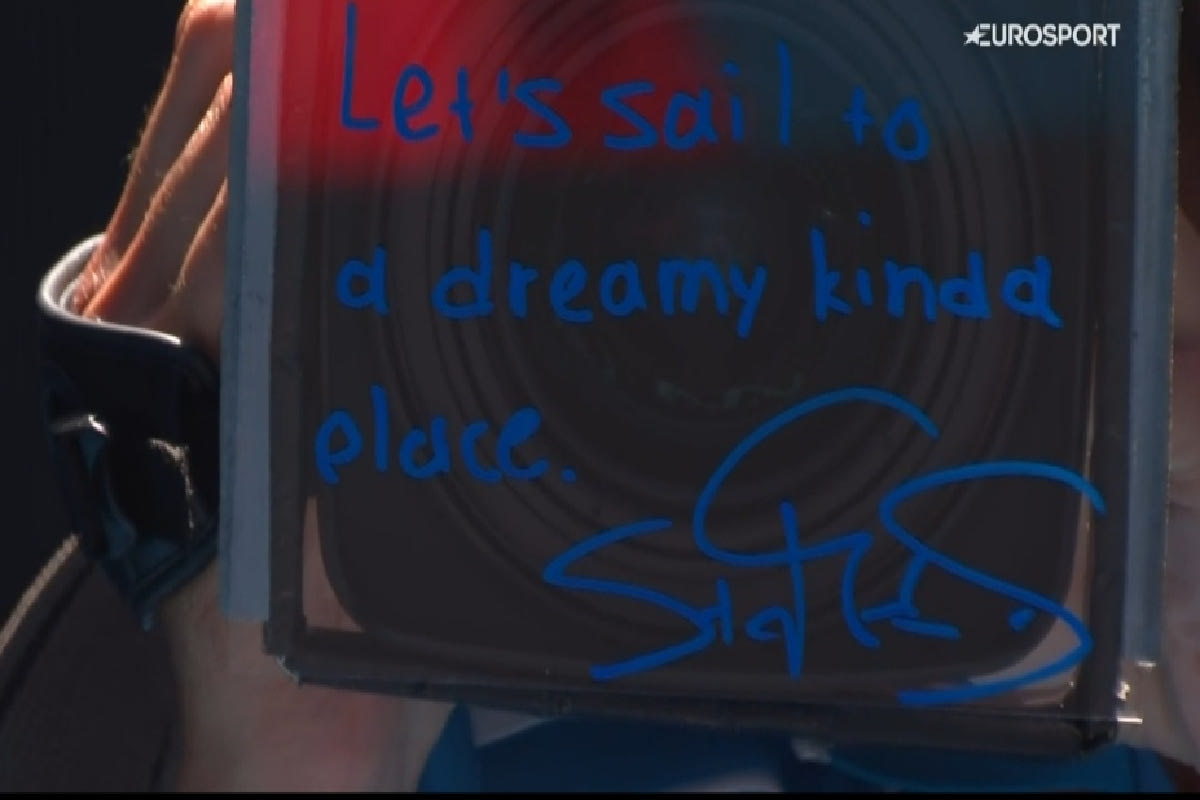 EUROSPORT
Let's sail to
a dreamy kinda
place.